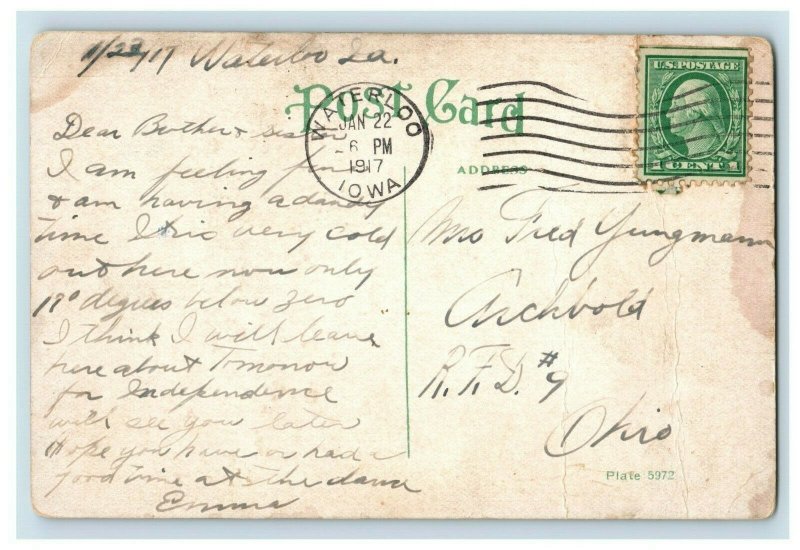 1/23/17 Waterloo Ia.
Post Card
WATERLOO
JAN 22
6 PM
1917
IOWA
U.S. POSTAGE
1 CENT 1
Dear Brother & sis
I am feeling fine
& am having a dandy
time. very cold
out here now only
17° degrees below zero
I think I will leave
here about Tomorrow
for Independence
with see you later
Hope you have or had a
good time at the dance
Emma
ADDRESS
Mrs Fred Yungmann
Archbold
R.F.D. #9
Ohio
Plate 5972